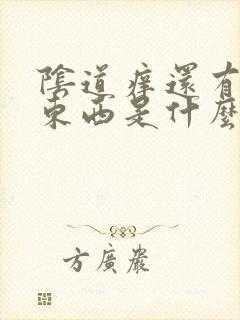 陰道痒還有
東西是什麼
方廣嚴